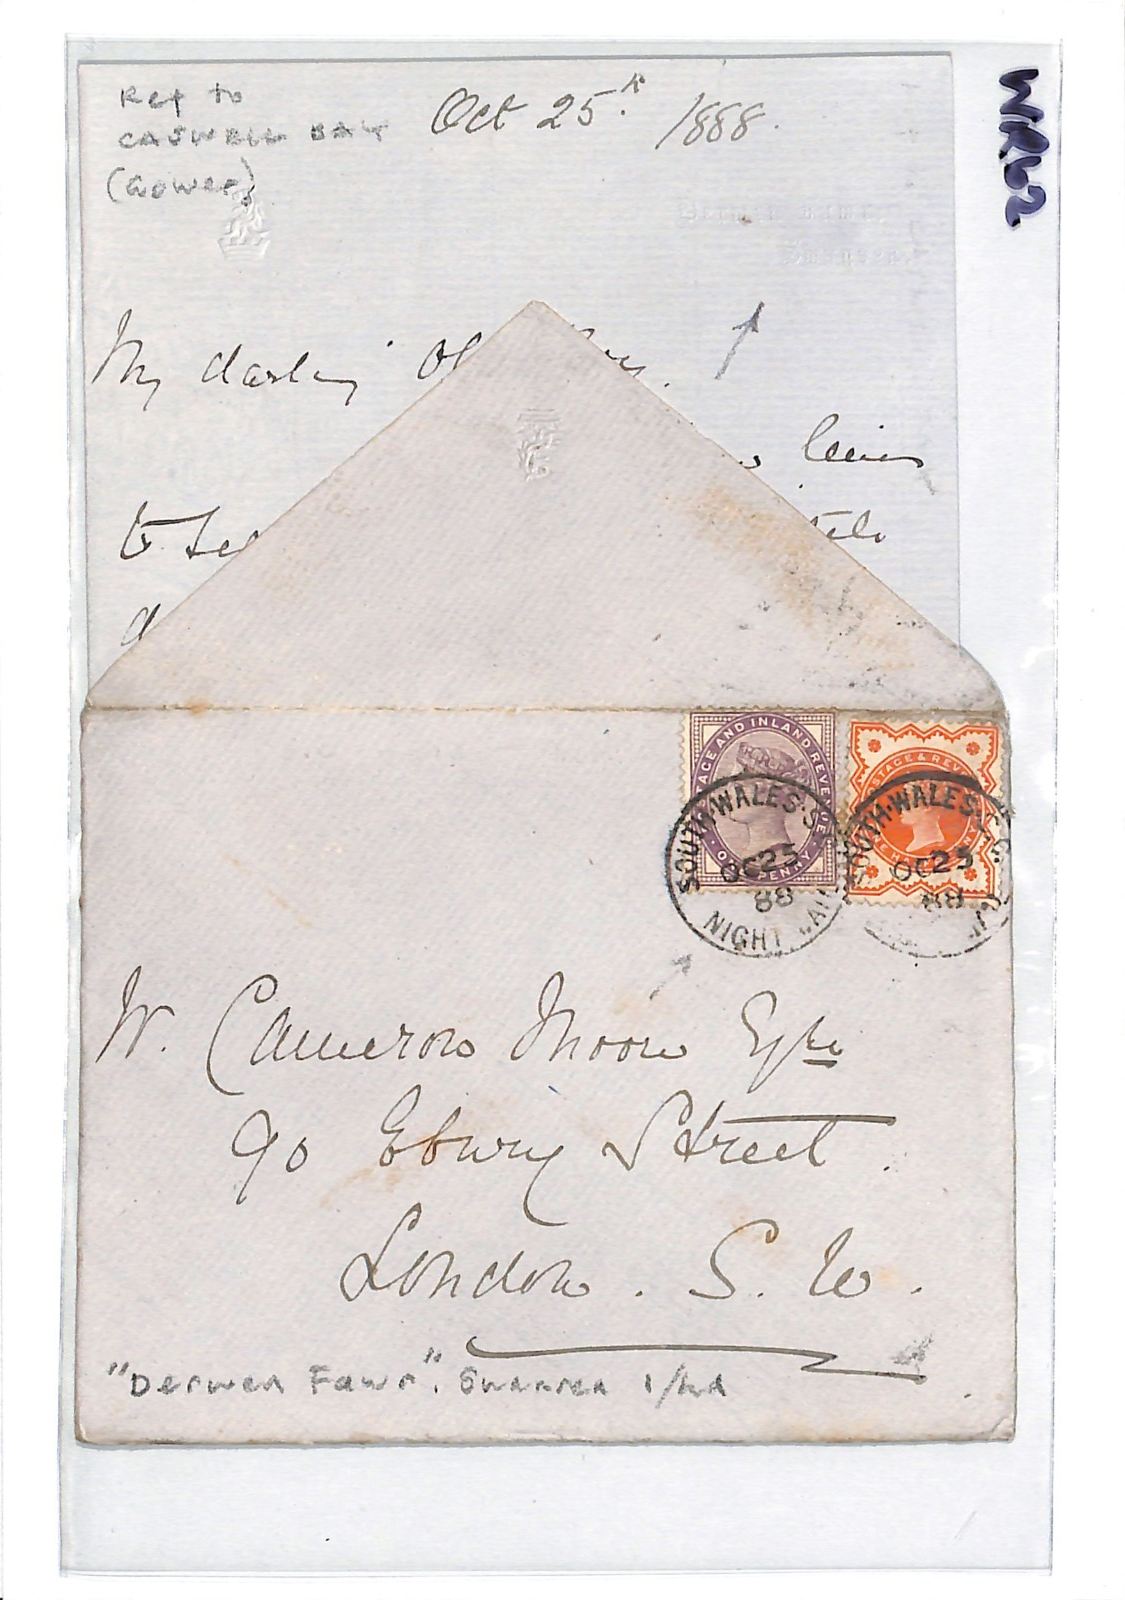 WR62
Ref to
CASWELL BAY
(Gower)
Oct 25th /1888.
My darling
to
POSTAGE AND INLAND REVENUE
ONE PENNY
POSTAGE & REVENUE
ONE HALFPENNY
SOUTH·WALES·ST
OC25
88
NIGHT MAIL
SOUTH·WALES·
OC25
88
W. Cameron Moore Esqre
90 Ebury Street.
London. S. W.
"Derwen Fawr". Swansea